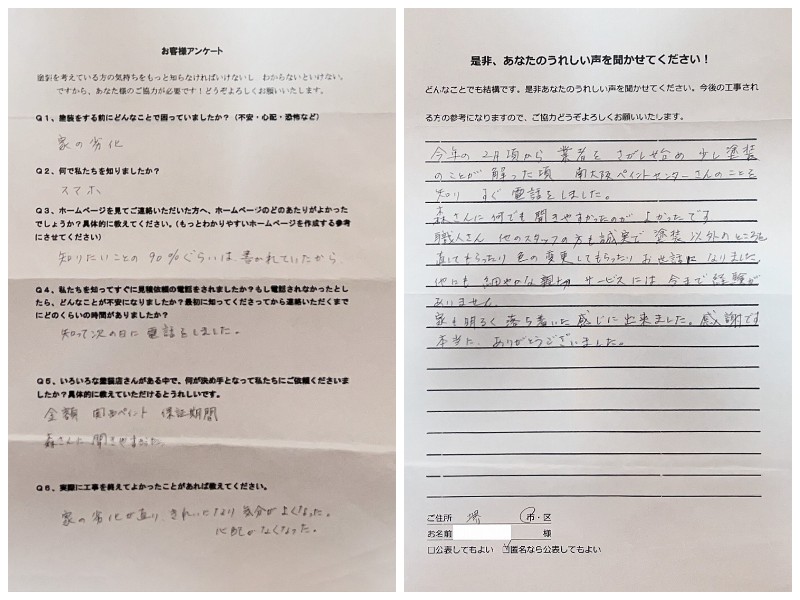 お客様アンケート
塗装を考えている方の気持ちをもっと知らなければいけないし わからないといけない。
ですから、あなた様のご協力が必要です！どうぞよろしくお願いいたします。
Q１、塗装をする前にどんなことで困っていましたか？（不安・心配・恐怖など）
家の劣化
Q２、何で私たちを知りましたか？
スマホ
Q３、ホームページを見てご連絡いただいた方へ、ホームページのどのあたりがよかった
でしょうか？具体的に教えてください。（もっとわかりやすいホームページを作成する参考
にさせてください）
知りたいことの90％ぐらいは書かれていたから
Q４、私たちを知ってすぐに見積依頼の電話をされましたか？もし電話されなかったとし
たら、どんなことが不安になりましたか？最初に知ってくださってから連絡いただくまで
にどのくらいの時間がありましたか？
知って次の日に電話をしました。
Q５、いろいろな塗装店さんがある中で、何が決め手となって私たちにご依頼くださいま
したか？具体的に教えていただけるとうれしいです。
金額 関西ペイント 保証期間
森さんに聞きやすかった
Q６、実際に工事を終えてよかったことがあれば教えてください。
家の劣化が直り きれいになり 気分がよくなった。
心配がなくなった。
是非、あなたのうれしい声を聞かせてください！
どんなことでも結構です。是非あなたのうれしい声を聞かせてください。今後の工事され
る方の参考になりますので、ご協力どうぞよろしくお願いいたします。
今年の2月頃から 業者をさがし始め 少し塗装
のことが解った頃 南大阪ペイントセンターさんのことを
知り すぐ電話をしました。
森さんに何でも聞きやすかったのがよかったです
職人さん 他のスタッフの方も誠実で 塗装以外のところも
直してもらったり 色の変更してもらったり お世話になりました
他にも 細やかな親切 サービスには 今まで経験が
ありません。
家も明るく 落ち着いた感じに出来ました。感謝です
本当に、ありがとうございました。
ご住所 堺 市・区
お名前 様
□公表してもよい ☑匿名なら公表してもよい